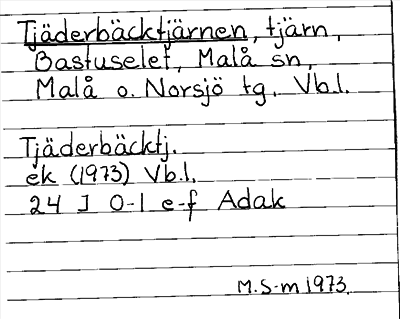 Tjäderbäcktjärnen, tjärn,
Bastuselet, Malå sn,
Malå o. Norsjö tg. Vb.l.
Tjäderbäcktj.
ek (1973) Vb.l.
24 I 0-1 e-f Adak
M.S-m 1973.